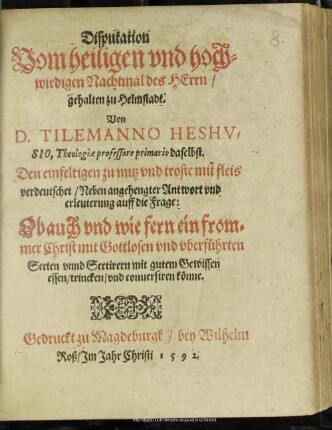 8.
Disputation
Vom heiligen vnd hoch-
wirdigen Nachtmal des HErrn/
gehalten zu Helmstadt.
Von
D. TILEMANNO HESHV-
SIO, Theologiæ professore primario daselbst.
Den einfeltigen zu nutz vnd troste mit fleis
verdeutschet / Neben angehengter Antwort vnd
erleuterung auff die Frage:
Ob auch vnd wie fern ein from-
mer Christ mit Gottlosen vnd vberführten
Secten vnnd Sectirern mit gutem Gewissen
essen/ trincken/ vnd conuersiren könne.
Gedruckt zu Magdeburgk / bey Wilhelm
Roß/ Im Jahr Christi 1592.